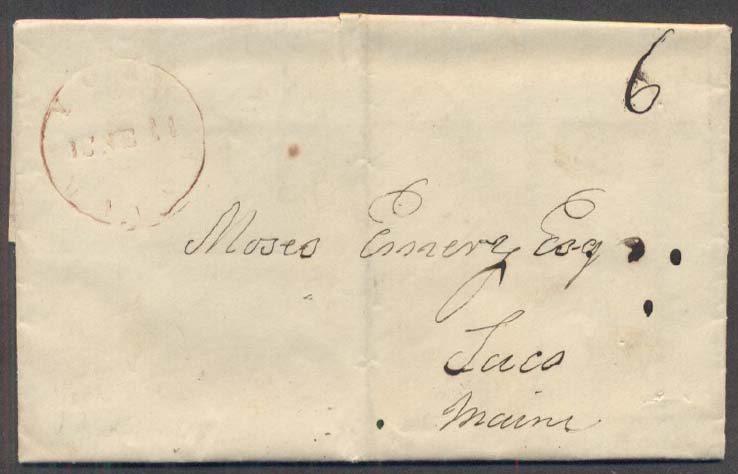 6
JUNE 11
Moses Emery Esq
Saco
Maine